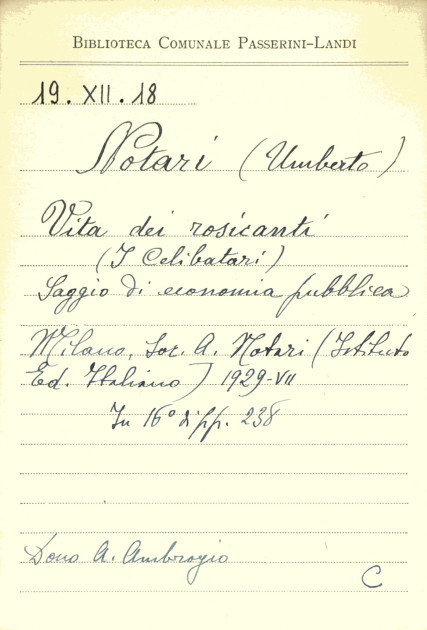 BIBLIOTECA COMUNALE PASSERINI-LANDI
19. XII. 18
Notari (Umberto)
Vita dei rosicanti
(I Celibatari)
Saggio di economia pubblica
Milano, Soc. A. Notari (Istituto
Ed. Italiano) 1929-VII
In 16° di pp. 238
Dono A. Ambrogio
C